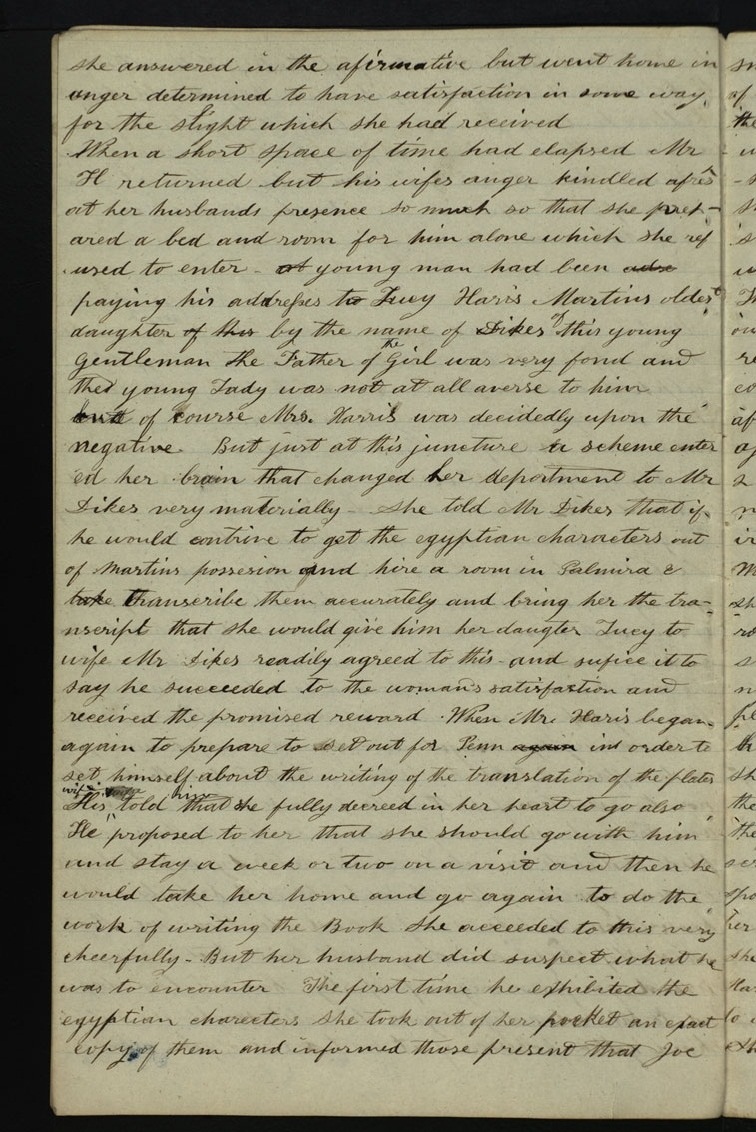 she answered in the afirmative but went home in
anger determined to have satisfaction in some way
for the slight which she had received
When a short space of time had elapsed Mr
H returned but his wifes anger kindled afres
at her husbands presence so much so that she prep-
ared a bed and room for him alone which she ref
used to enter - at young man had been
paying his addresses to Lucy Haris Martins oldest
daughter of this by the name of Dikes of this young
Gentleman the Father of the Girl was very fond and
the young Lady was not at all averse to him
of course Mrs. Harris was decidedly upon the
negative. But just at this juncture a scheme enter
ed her brain that changed her deportment to Mr
Dikes very materially - she told Mr Dikes that if
he would contrive to get the egyptian characters out
of Martins possesion and hire a room in Palmira &
take transcribe them accurately and bring her the tra-
nscript that she would give him her daugter Lucy to
wife Mr Dikes readily agreed to this - and sufice it to
say he succeeded to the woman's satisfaction and
received the promised reward. When Mr. Haris began
again to prepare to set out for Penn again in order to
set himself about the writing of the translation of the plates
His wife told him that she fully decreed in her heart to go also
He proposed to her that she should go with him
and stay a week or two on a visit and then he
would take her home and go again to do the
work of writing the Book she acceeded to this very
cheerfully - But her husband did suspect what he
was to encounter The first time he exhibited the
egyptian charecters she took out of her pocket an exact
copy of them and informed those present that Joe